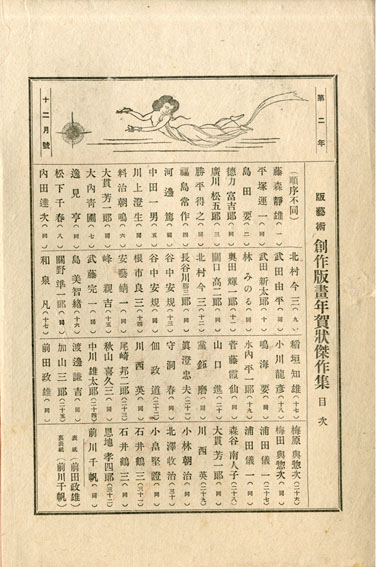 第二年
十二月號
版藝術 創作版畫年賀狀傑作集 目次
(順序不同) 北村今三(九) 稲垣知雄 梅原與惣次(二十六)
藤森靜雄(一) 武田由平(同) 小川龍彦(十八) 梅田與惣次(同)
平塚運一(同) 武田新太郎(十) 鳴海要(同) 浦田儀一(二十七)
島田要(二) 林みのる(同) 水内平一郎(十九) 浦田儀一(同)
德力富吉郎(同) 奥田輝一郎(十一) 霞仙(同) 森谷南人子(二十八)
廣川松五郎(三) 關口高二郎(同) 山口進(二十) 大貫芳一郎(同)
勝平得之(同) 北村今三(十二) 磨(同) 川西英(二十九)
福島常作(四) 長谷川勝三郎(同) 眞澄忠夫(二十一) 小林朝治(同)
河邊篤(同) 谷中安規(十三) 守洞春(同) 北澤收治(三十)
中田一男(五) 谷中安規(同) 佃政道(二十二) 小畠堅證(同)
川上澄生(同) 根市良三(十四) 川西英(同) 石井鶴三(三十一)
料治朝鳴(六) 安藝績一(同) 尾崎邦二郎(二十三) 石井鶴三(同)
大貫芳一郎(同) 峰親吉(十五) 秋山喜久三(同) 恩地孝四郎(三十二)
大内青圃(七) 武藤完一(同) 中川雄太郎(二十四) 前川千帆(同)
逸見亨(同) 島美智緒(十六) 渡邊謙吉(同) 表紙(前田政雄)
松下千春(八) 關野準一郎(同) 加山三郎(二十五) 裏表紙(前川千帆)
内田達次(同) 和泉凡(十七) 前田政雄(同)